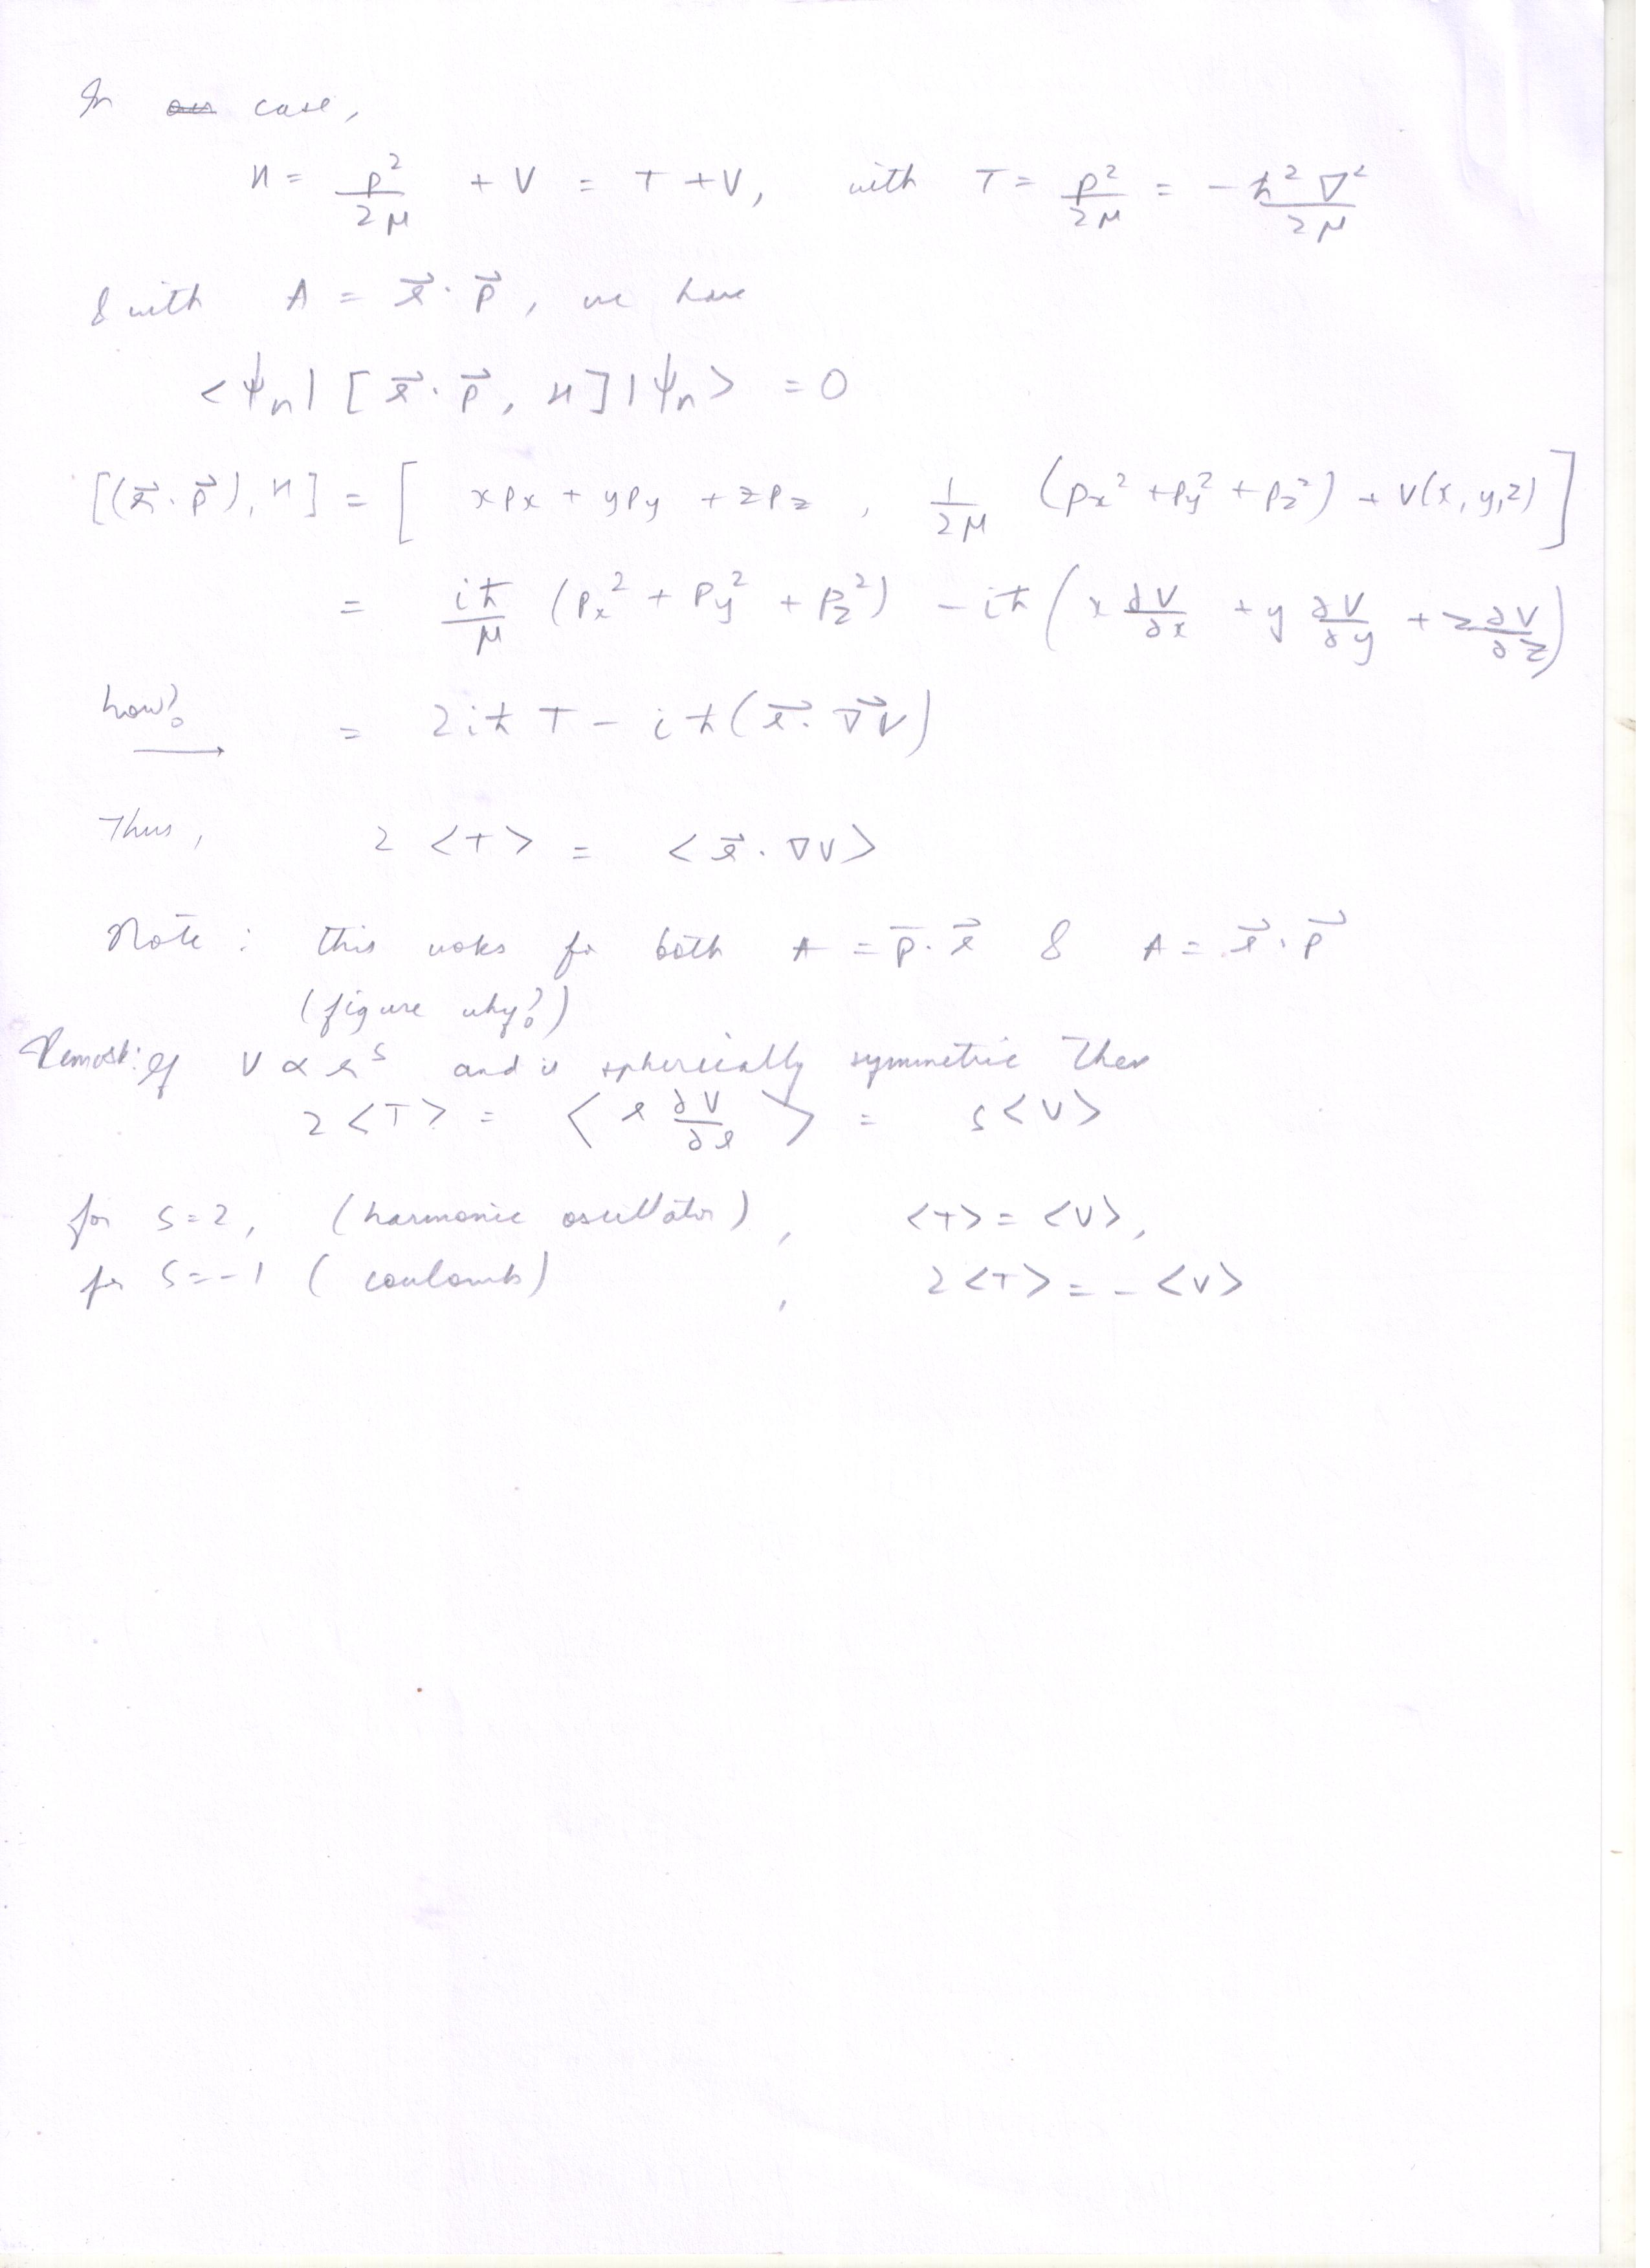 In our case,
H = p²/2μ + V = T + V, with T = p²/2μ = -ħ²∇²/2μ
& with A = r⃗·p⃗, we have
<ψn| [r⃗·p⃗, H] |ψn> = 0
[(r⃗·p⃗), H] = [ xpx + ypy + zpz , 1/2μ (px² + py² + pz²) + V(x, y, z) ]
= iħ/μ (px² + py² + pz²) - iħ (x ∂V/∂x + y ∂V/∂y + z ∂V/∂z)
how? → = 2iħ T - iħ (r⃗·∇⃗V)
Thus, 2 <T> = <r⃗·∇V>
Note: this works for both A = p⃗·r⃗ & A = r⃗·p⃗
(figure why?)
Remark: If V ∝ r^s and is spherically symmetric then
2 <T> = <r ∂V/∂r> = s<V>
for s=2, (harmonic oscillator), <T> = <V>,
for s=-1 (coulomb), 2<T> = -<V>